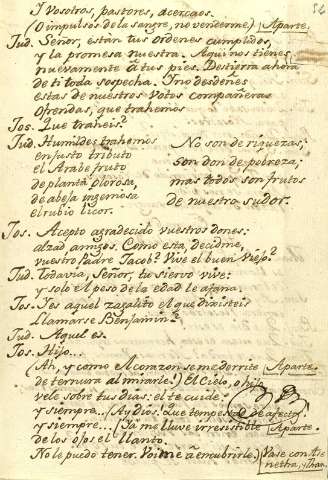 56
Y vosotros, pastores, acercaos,
(O impulsos de la sangre, no vencerme) Aparte.
Jud. Señor, están tus ordenes cumplidas,
y la promesa nuestra. Aqui nos tienes
nuevamente á tus pies. Destierra ahora
de ti toda sospecha. Y no desdeñes
estas de nuestros votos compañeras
Ofrendas, que trahemos
Jos. Que traheis?
Jud. Humildes trahemos
en justo tributo
el Arabe fruto
de planta olorosa,
de abeja ingeniosa
el rubio licor.
No son de riquezas,
son don de pobreza;
mas todos son frutos
de nuestro sudor.
Jos. Acepto agradecido vuestros dones:
alzad amigos. Como esta, decidme,
vuestro Padre Jacob? Vive el buen Viejo?
Jud. Todavia, Señor, tu siervo vive:
y solo el peso de la edad le afana.
Jos. Y es aquel zagalito el que dixisteis
llamarse Benjamin?
Jud. Aquel es.
Jos. Hijo...
(Ah, y como el corazon se me derrite Aparte.
de ternura al mirarle.) El Cielo, o hijo,
vele sobre tus dias: el te cuide;
y siempre... (Ay dios. Que tempestad de afectos)
y siempre... (Ya me llueve irresistible Aparte.
de los ojos el llanto.
No le puedo tener. Voime á encubrirlo.) Vase con Ase
netha, y Than.